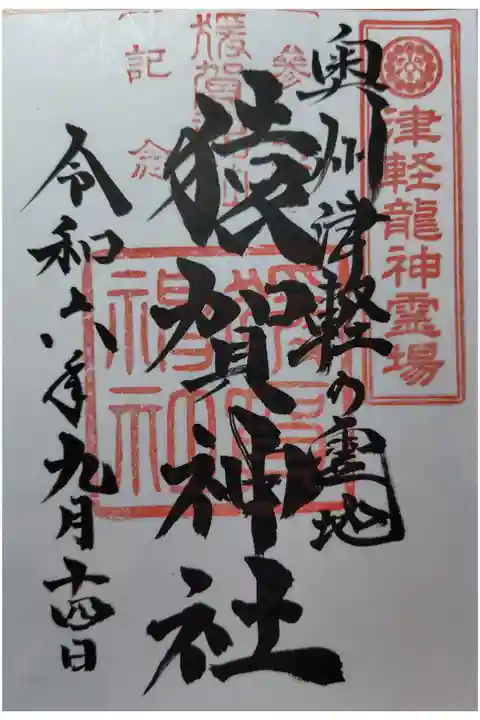 津軽龍神霊場
奥州津軽の霊地
猿賀神社
令和六年九月十四日
記念